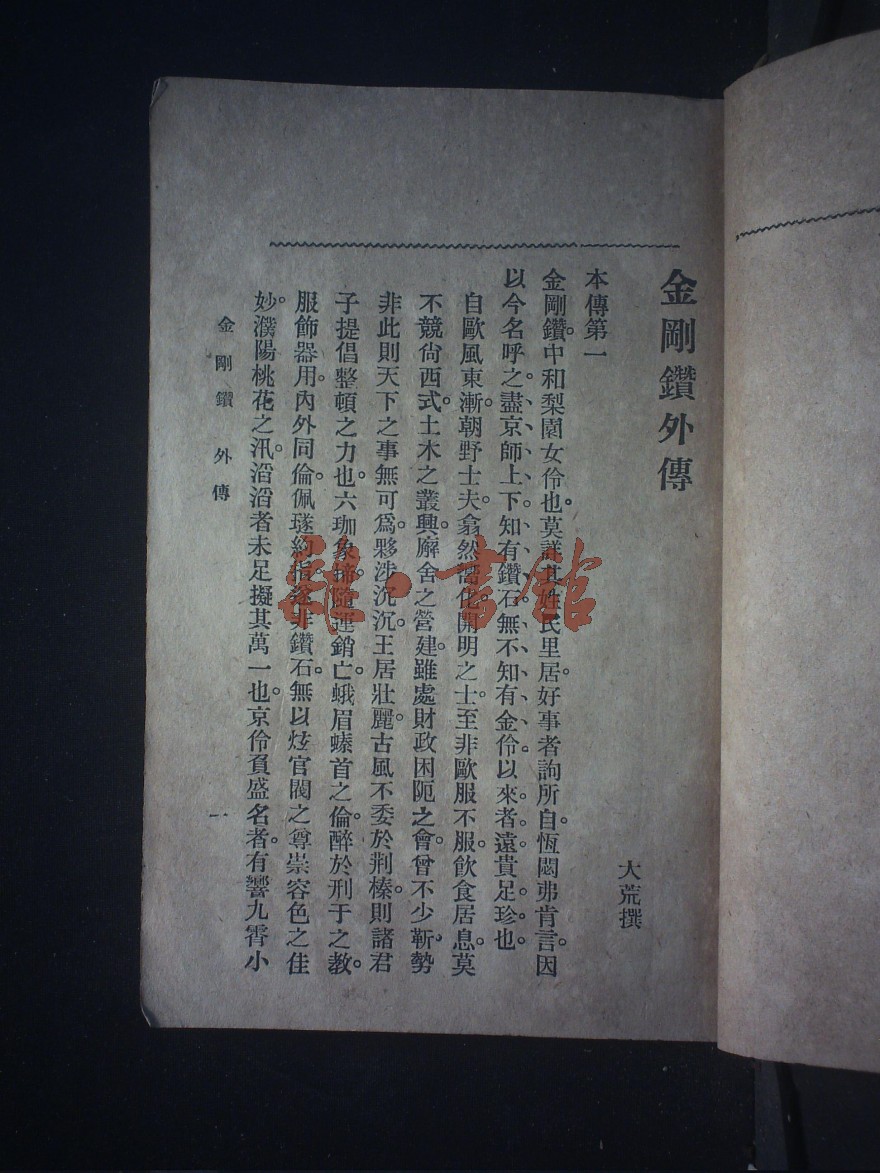 金剛鑽外傳
大荒撰
本傳第一
金剛鑽。中和梨園女伶也。莫詳其姓民里居。好事者詢所自。恆閟弗肯言。因
以今名呼之。盡京師上下。知有鑽石。無不知有金伶。以來者遠。貴足珍也。
自歐風東漸。朝野士夫。翕然嚮化。開明之士。至非歐服不服。飲食居息。莫
不競尙西式。土木之叢興。廨舍之營建。雖處財政困阨之會。曾不少靳。勢
非此則天下之事無可爲。夥涉沉沉。王居壯麗。古風不委於荆榛。則諸君
子提倡整頓之力也。六珈象揥。隨運銷亡。蛾眉螓首之倫。醉於刑于之敎。
服飾器用。內外同倫。佩璲約指。遂非鑽石。無以炫官閥之尊崇。容色之佳
妙。濮陽桃花之汛。滔滔者未足擬其萬一也。京伶負盛名者。有響九霄小
金剛鑽 外傳
一
雜·書館